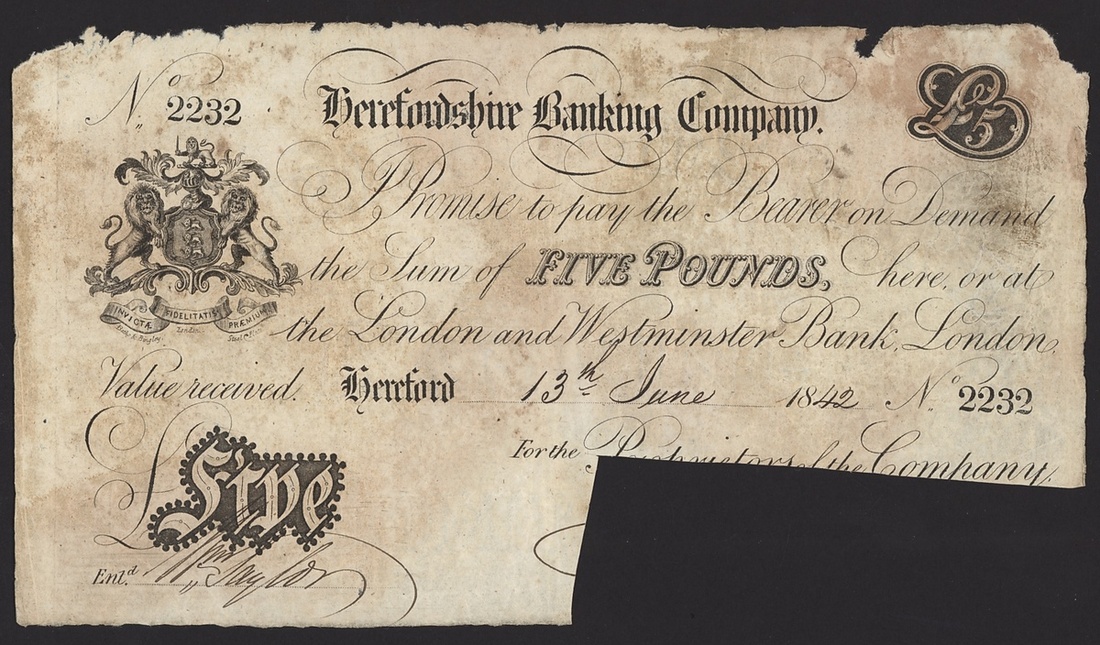 No 2232
Herefordshire Banking Company.
£5
I Promise to pay the Bearer on Demand
the Sum of FIVE POUNDS, here, or at
the London and Westminster Bank, London,
INVICTÆ FIDELITATIS PRÆMIUM
London.
Value received. Hereford 13th June 1842 No 2232
For the Proprietors of the Company.
£Five
Entd. Wm Taylor